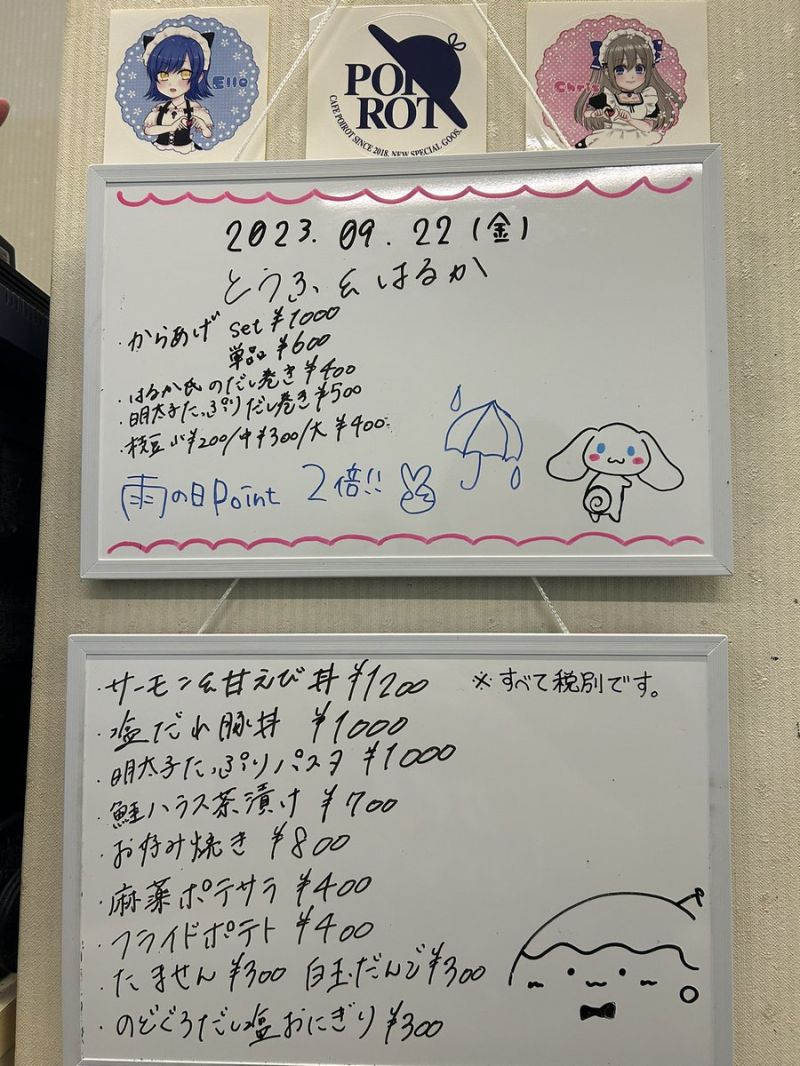 Ello
POI
ROT
CAFE POIROT SINCE 2018. NEW SPECIAL GOOS.
Chris
2023. 09. 22 (金)
とうふ&はるか
・からあげ set ¥1000
単品 ¥600
・はるか氏のだし巻き ¥400
・明太子たっぷりだし巻き ¥500
・枝豆 小¥200/中¥300/大¥400
雨の日Point 2倍!!
・サーモン&甘えび丼 ¥1200
※すべて税別です。
・塩だれ豚丼 ¥1000
・明太子たっぷりパスタ ¥1000
・鮭ハラス茶漬け ¥700
・お好み焼き ¥800
・麻薬ポテサラ ¥400
・フライドポテト ¥400
・たません ¥300 白玉だんご ¥300
・のどぐろだし塩おにぎり ¥300